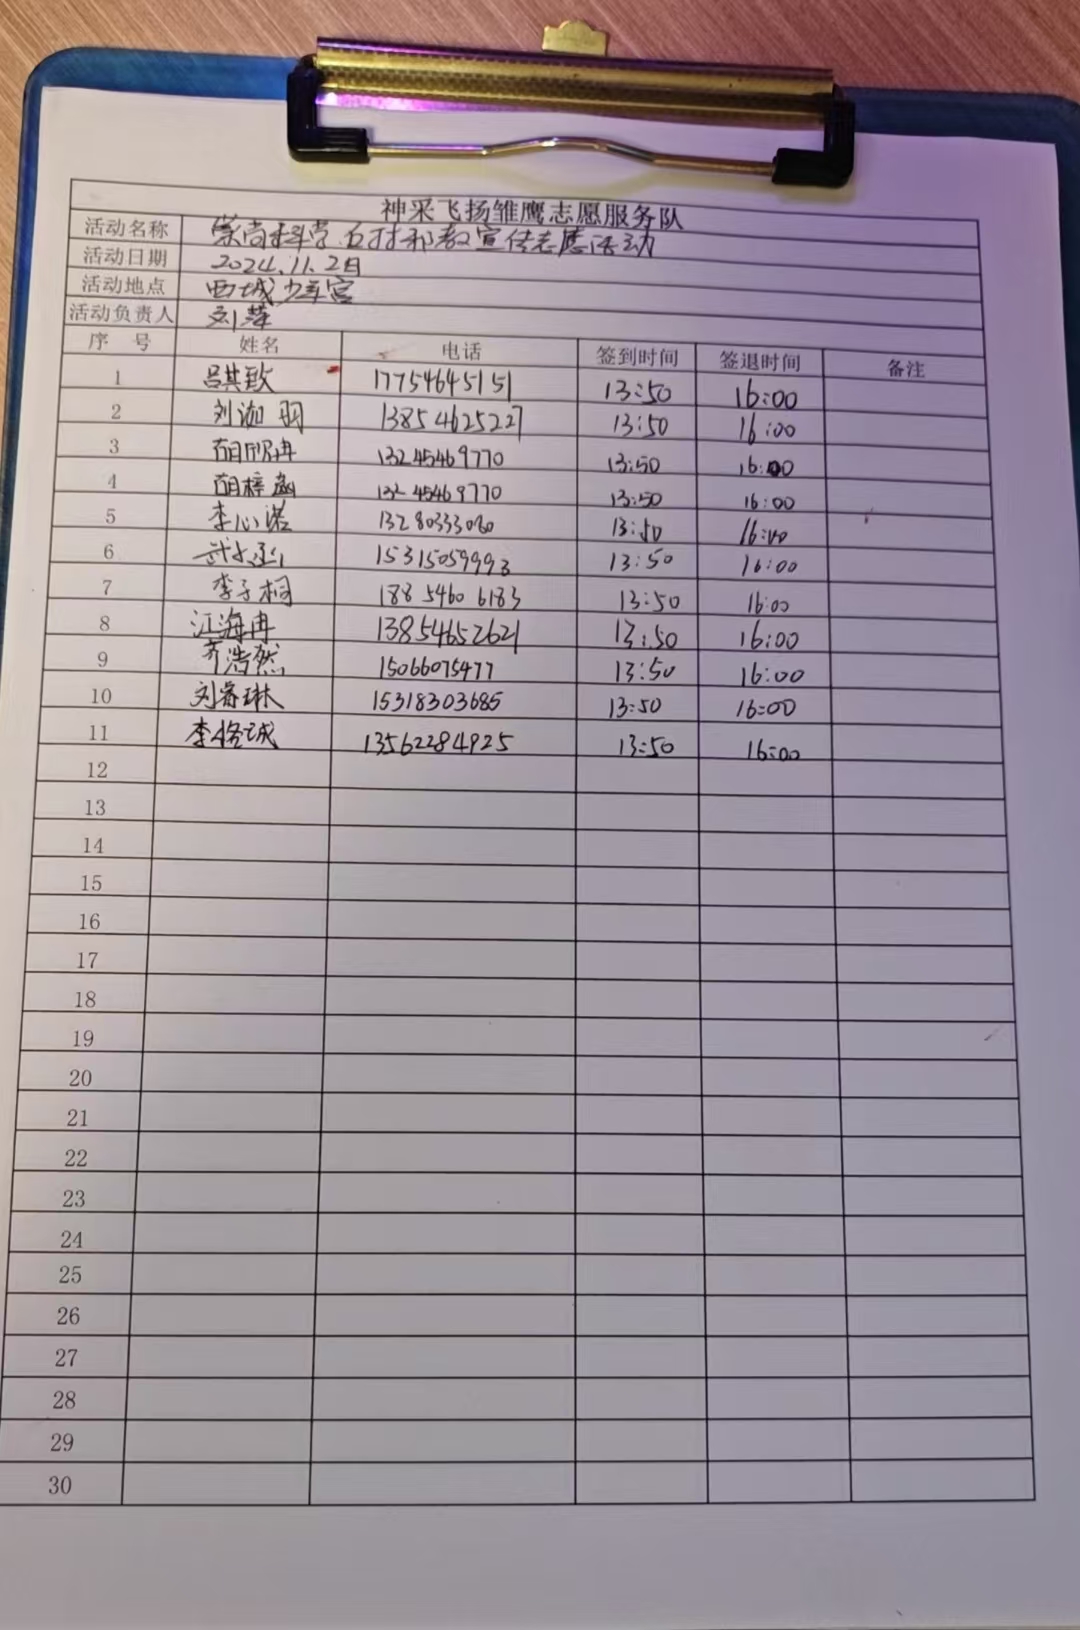 神采飞扬雏鹰志愿服务队
活动名称 崇尚科学.反对邪教宣传志愿活动
活动日期 2024.11.2日
活动地点 西城少年宫
活动负责人 刘萍
序 号 姓名 电话 签到时间 签退时间 备注
1 吕其致 17754645151 13:50 16:00
2 刘泇羽 13854625227 13:50 16:00
3 胡欣冉 13245469770 13:50 16:00
4 胡梓涵 13245469770 13:50 16:00
5 李心诺 13280333060 13:50 16:00
6 15315059993 13:50 16:00
7 李子桐 188 5460 6183 13:50 16:00
8 江海冉 13854652621 13:50 16:00
9 齐浩然 15066075477 13:50 16:00
10 刘睿琳 15318303685 13:50 16:00
11 李恪诚 13562284925 13:50 16:00
12
13
14
15
16
17
18
19
20
21
22
23
24
25
26
27
28
29
30